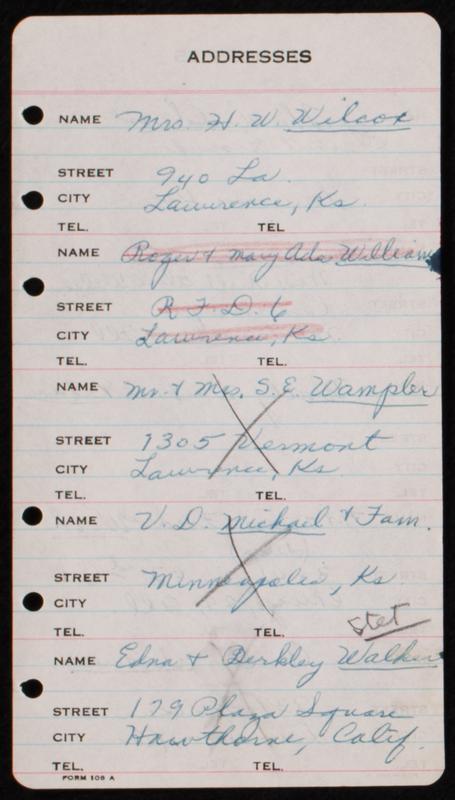 ADDRESSES
NAME Mrs. H. W. Wilcox
STREET 940 La.
CITY Lawrence, Ks.
TEL. TEL
NAME Roger & Mary Ada William
STREET R F D. 6
CITY Lawrence, Ks.
TEL. TEL.
NAME Mr. & Mrs. S. E. Wampler
STREET 1305 Vermont
CITY Lawrence, Ks.
TEL. TEL.
NAME V. D. Michael & Fam.
STREET Minneapolis, Ks
CITY
stet
TEL. TEL.
NAME Edna & Berkley Walker
STREET 179 Plaza Square
CITY Hawthorne, Calif.
TEL. TEL.
FORM 108 A